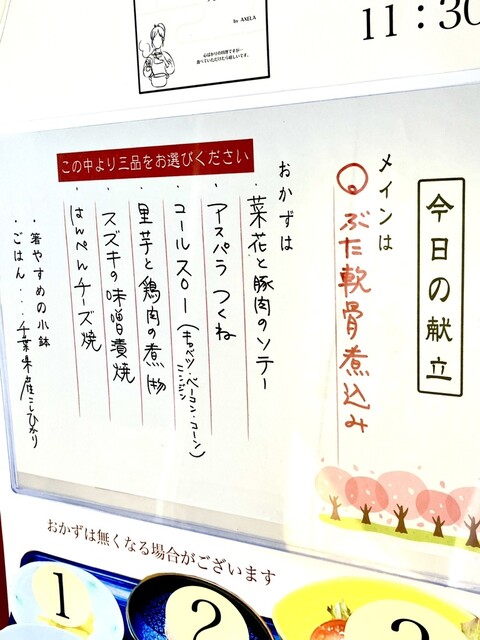 by AXELA
心ばかりの料理ですが…
食べていただけたら嬉しいです。
11：30
今日の献立
メインは
ぶた軟骨煮込み
おかずは
この中より三品をお選びください
・菜花と豚肉のソテー
・アスパラつくね
・コールスロー（キャベツ・ベーコン・コーン・ニンジン）
・里芋と鶏肉の煮物
・スズキの味噌漬焼
・はんぺんチーズ焼
・箸やすめの小鉢
・ごはん・・・千葉県産こしひかり
おかずは無くなる場合がございます
1
2
3